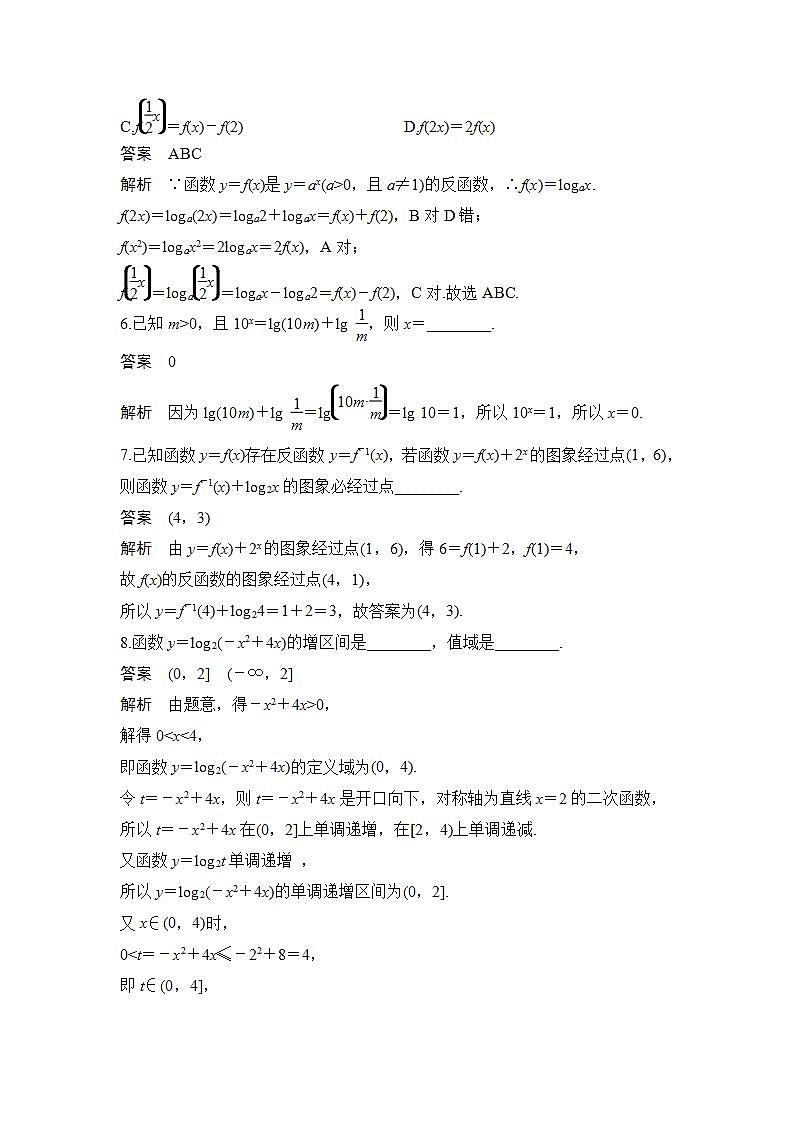 C.f(1/2x)＝f(x)－f(2)　　D.f(2x)＝2f(x)
答案　ABC
解析　∵函数 y＝f(x)是 y＝aˣ(a>0，且 a≠1)的反函数，∴f(x)＝logₐx.
f(2x)＝logₐ(2x)＝logₐ2＋logₐx＝f(x)＋f(2)，B 对 D 错；
f(x²)＝logₐx²＝2logₐx＝2f(x)，A 对；
f(1/2x)＝logₐ(1/2x)＝logₐx－logₐ2＝f(x)－f(2)，C 对.故选 ABC.
6.已知 m>0，且 10ˣ＝lg(10m)＋lg 1/m，则 x＝________.
答案　0
解析　因为 lg(10m)＋lg 1/m＝lg(10m·1/m)＝lg 10＝1，所以 10ˣ＝1，所以 x＝0.
7.已知函数 y＝f(x)存在反函数 y＝f⁻¹(x)，若函数 y＝f(x)＋2ˣ的图象经过点(1，6)，
则函数 y＝f⁻¹(x)＋log₂x 的图象必经过点________.
答案　(4，3)
解析　由 y＝f(x)＋2ˣ的图象经过点(1，6)，得 6＝f(1)＋2，f(1)＝4，
故 f(x)的反函数的图象经过点(4，1)，
所以 y＝f⁻¹(4)＋log₂4＝1＋2＝3，故答案为(4，3).
8.函数 y＝log₂(－x²＋4x)的增区间是________，值域是________.
答案　(0，2]　(－∞，2]
解析　由题意，得－x²＋4x>0，
解得 0<x<4，
即函数 y＝log₂(－x²＋4x)的定义域为(0，4).
令 t＝－x²＋4x，则 t＝－x²＋4x 是开口向下，对称轴为直线 x＝2 的二次函数，
所以 t＝－x²＋4x 在(0，2]上单调递增，在[2，4)上单调递减.
又函数 y＝log₂t 单调递增 ，
所以 y＝log₂(－x²＋4x)的单调递增区间为(0，2].
又 x∈(0，4)时，
0<t＝－x²＋4x≤－2²＋8＝4，
即 t∈(0，4]，